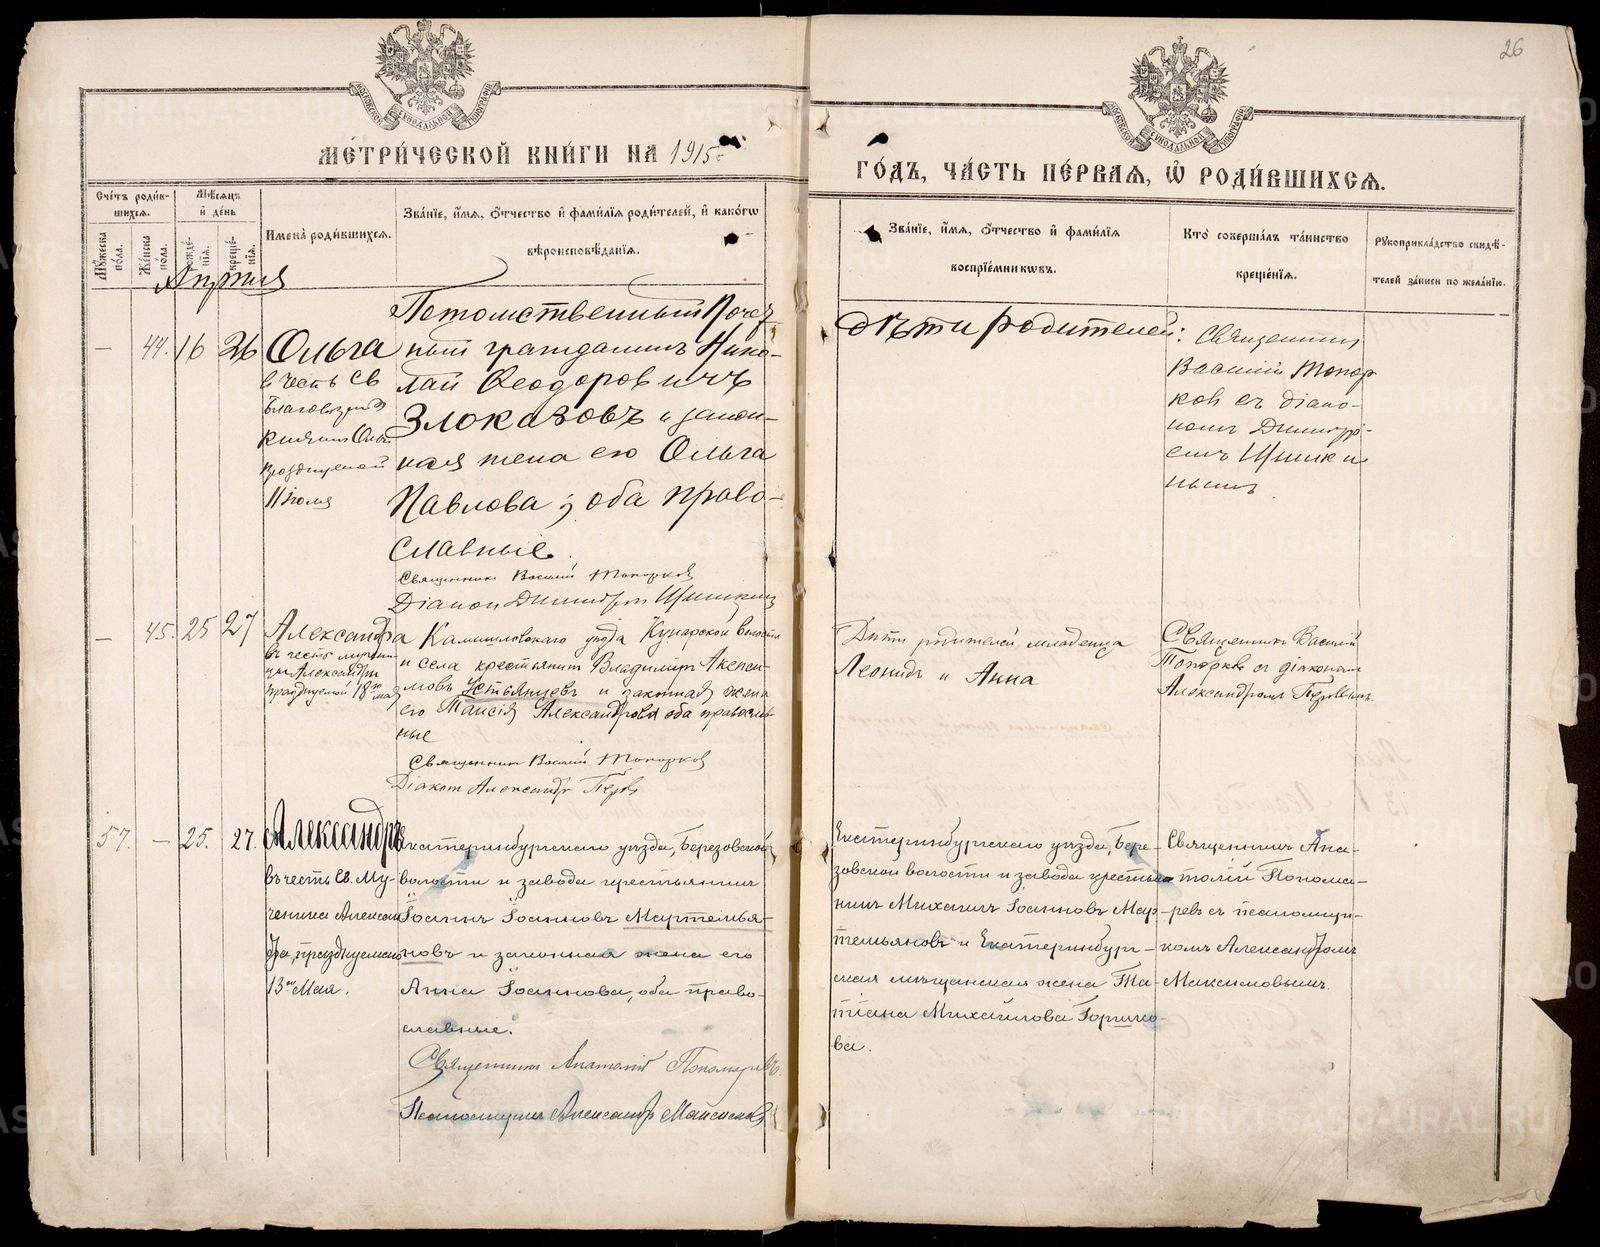 26
МЕТРИ́ЧЕСКОЙ КНИ́ГИ НА 1915
ГО́ДЪ, ЧА́СТЬ ПЕ́РВАЯ, Ѽ РОДИ́ВШИХСЯ.
Сче́тъ роди́в-
шихся.
Мѣсяцъ
и҆ де́нь
Мꙋ́жеска
по́ла.
Же́нска
по́ла.
рожде́-
нїѧ.
креще́-
нїѧ.
Имена̀ роди́вшихся.
Зва́нїе, и҆́мя, о҆́тчество и҆ фами́лїя роди́телей, и҆ како́гѡ
вѣроисповѣ́данїя.
Зва́нїе, и҆́мя, о҆́тчество и҆ фами́лїя
воспрїе́мникѡвъ.
Кто̀ соверша́лъ та́инство
креще́нїя.
Рꙋкоприкла́дство свидѣ́-
телей за́писи по жела́нїю.
Апрѣля
— 44. 16 26 Ольга
въ честь Св
Княгини Ольги
11 Іюля
Потомственный Почет
ный гражданинъ Нико-
лай Ѳеодоровичъ
Злоказовъ и закон-
ная жена его Ольга
Павлова; оба право-
славные.
Священникъ Василій Топорковъ
Діаконъ Димитрій Шишкинъ
дѣти родителей:
Священникъ
Василій Топор
ковъ съ діако-
номъ Димитрі-
емъ Шишки
нымъ
— 45. 25 27 Александра
въ честь мучени-
цы Александры
празднуемой 18го мая
Камышловскаго уѣзда Кунарской волости
и села крестьянинъ Владиміръ
Устьянцевъ и законная жена
его Таисія Александрова оба православ
ные
Священникъ Василій Топорковъ
Діаконъ Александръ
Дѣти родителей младенца
Леонидъ и Анна
Священникъ Василій
Топорковъ съ діакономъ
Александромъ
57. — 25. 27. Александръ
въ честь Св. Му-
ченика Алексан
дра, празднуемаго
13го Мая.
Екатеринбургскаго уѣзда, Березовской
волости и завода крестьянинъ
Іоаннъ Іоанновъ Мартемья-
новъ и законная жена его
Анна Іоаннова, оба право-
славные.
Священникъ Анатолій Пономаревъ.
Псаломщикъ Александръ Максимовъ
Екатеринбургскаго уѣзда, Бере-
зовской волости и завода крестья-
нинъ Михаилъ Іоанновъ Мар-
темьяновъ и Екатеринбург-
ская мѣщанская жена Та-
тіана Михайлова Горшко-
ва.
Священникъ Ана-
толій Понома-
ревъ съ псаломщи-
комъ Александромъ
Максимовымъ.